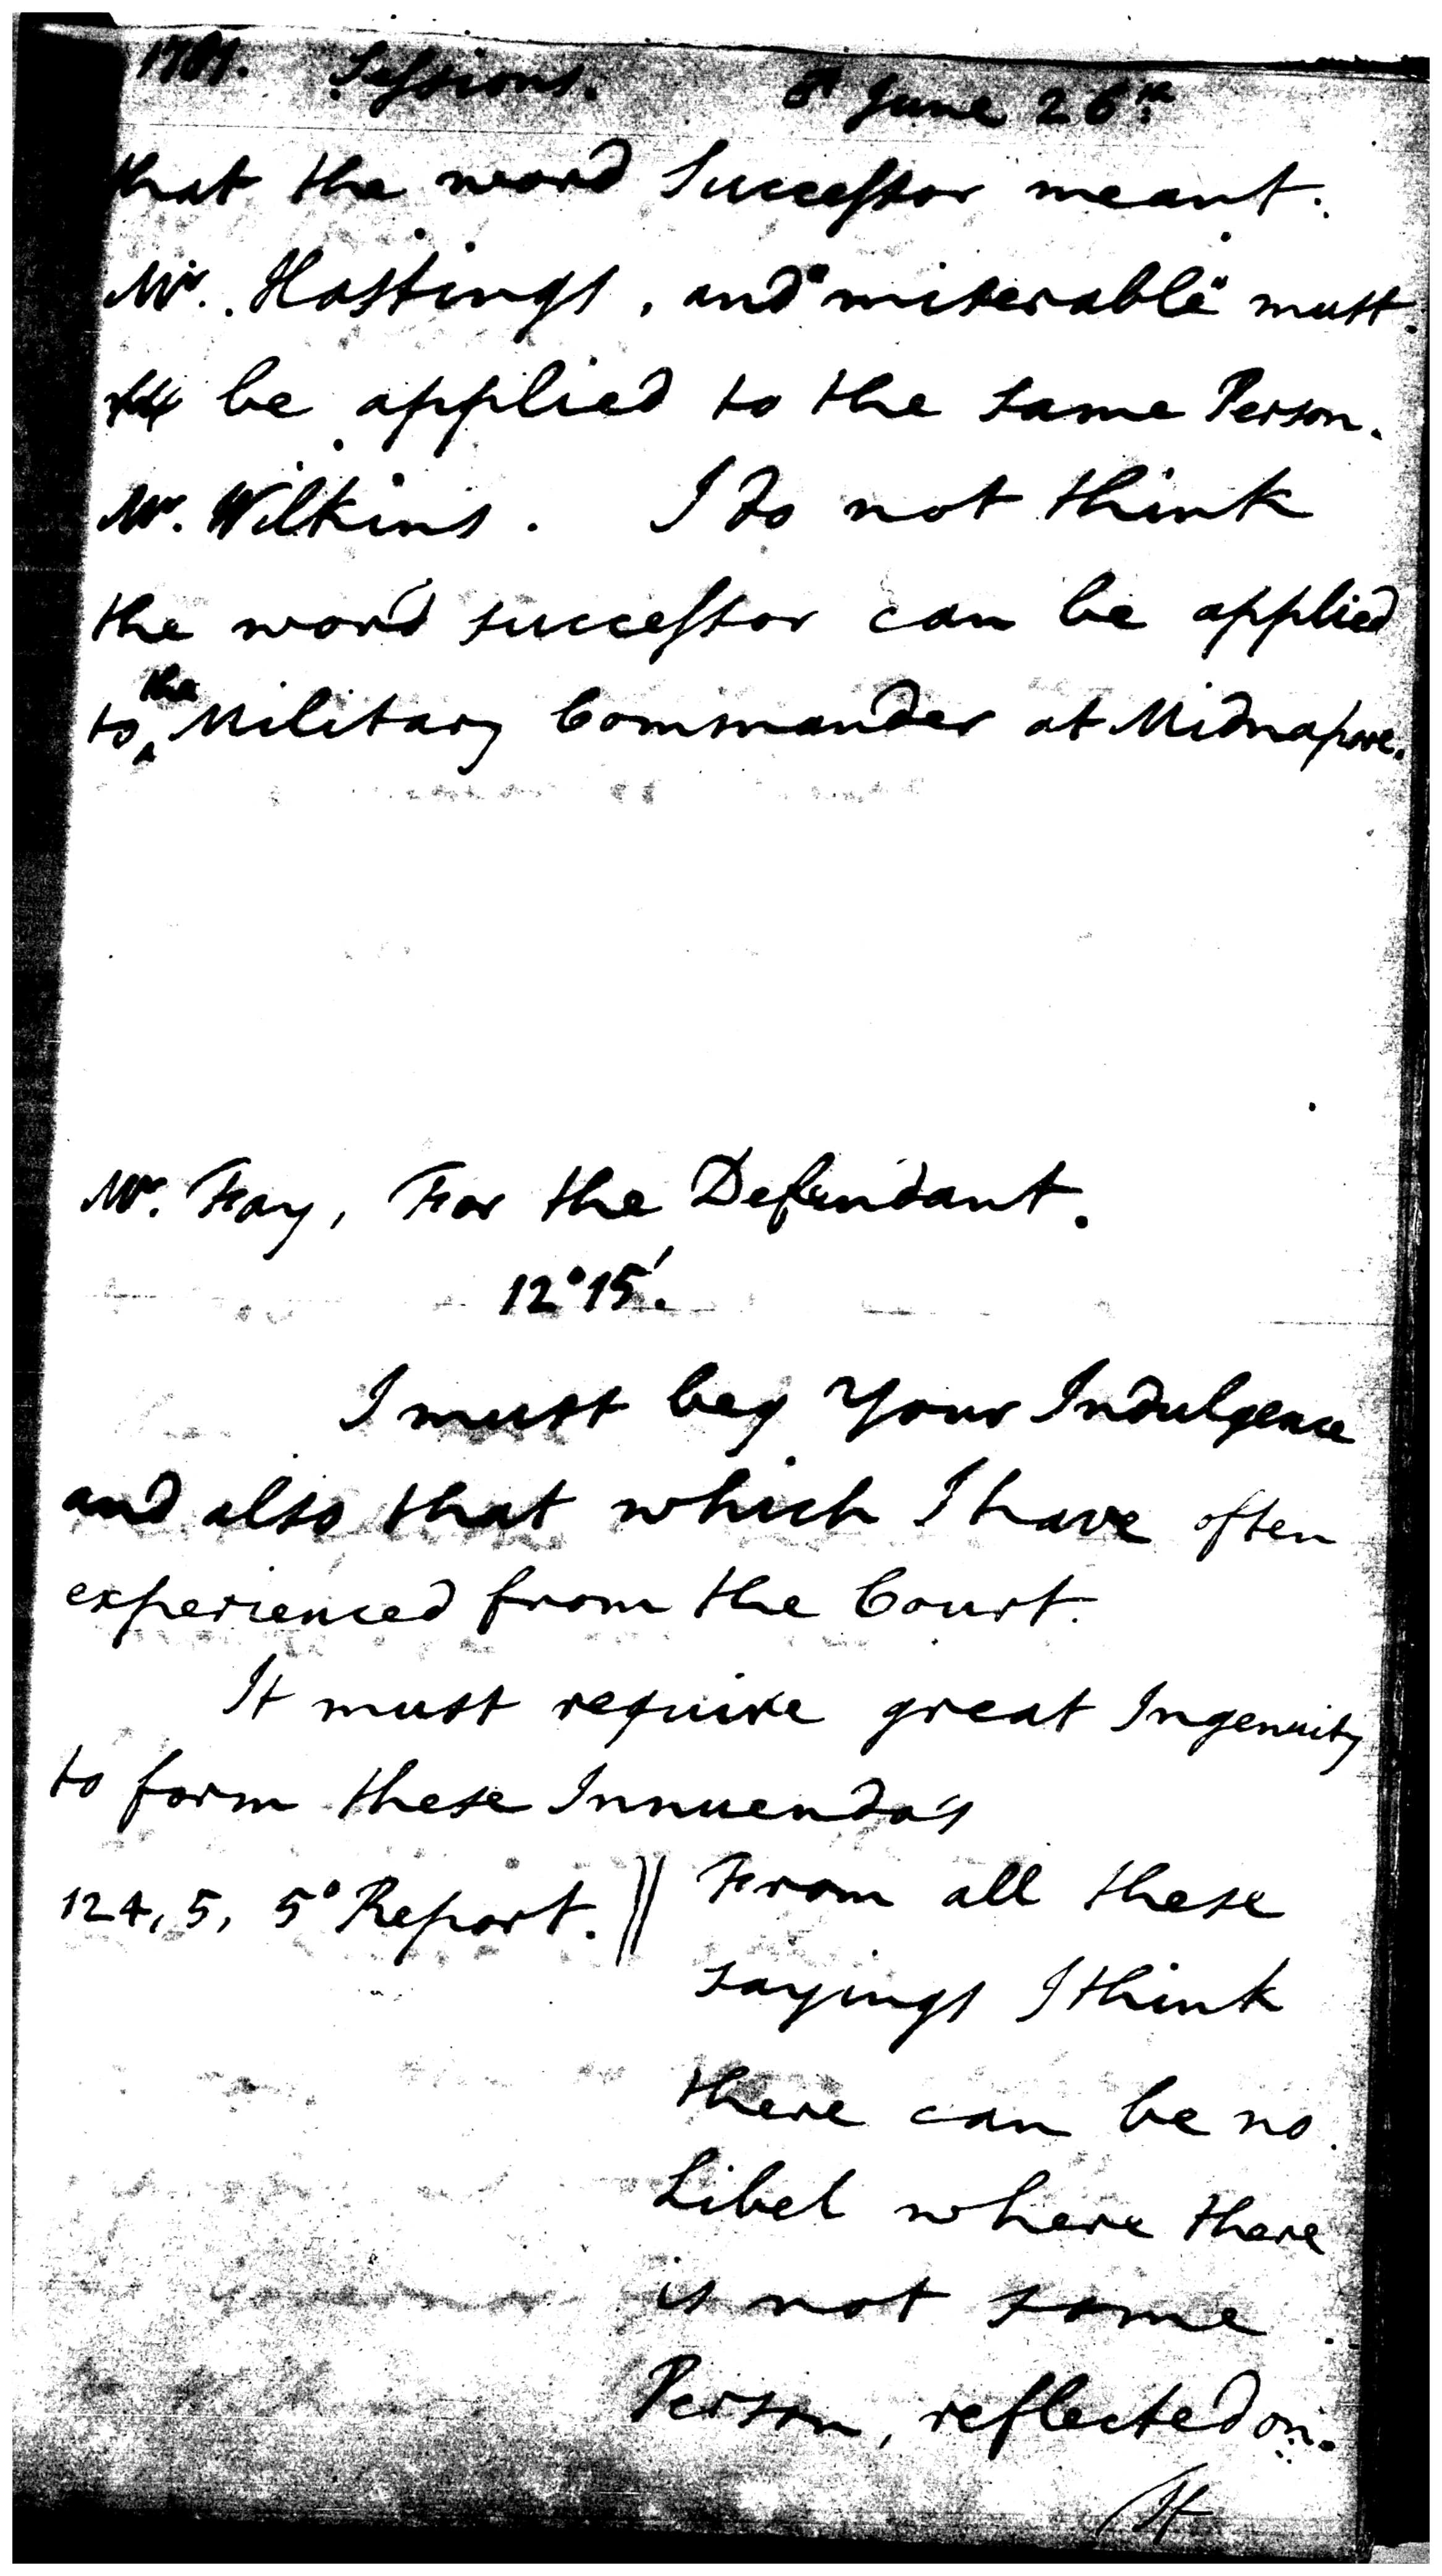 1781. Sessions. ♂ June 26th
that the word Successor meant.
Mr. Hastings, and "miserable" must
be applied to the same Person.
Mr. Wilkins. I do not think
the word successor can be applied
to the Military Commander at Midnapore.
Mr. Fay, For the Defendant.
12°15'.
I must beg Your Indulgence
and also that which I have often
experienced from the Court.
It must require great Ingenuity
to form these Innuendo's
124, 5, 5° Report. || From all these
sayings I think
there can be no
Libel where there
is not some
Person, reflected on.
It